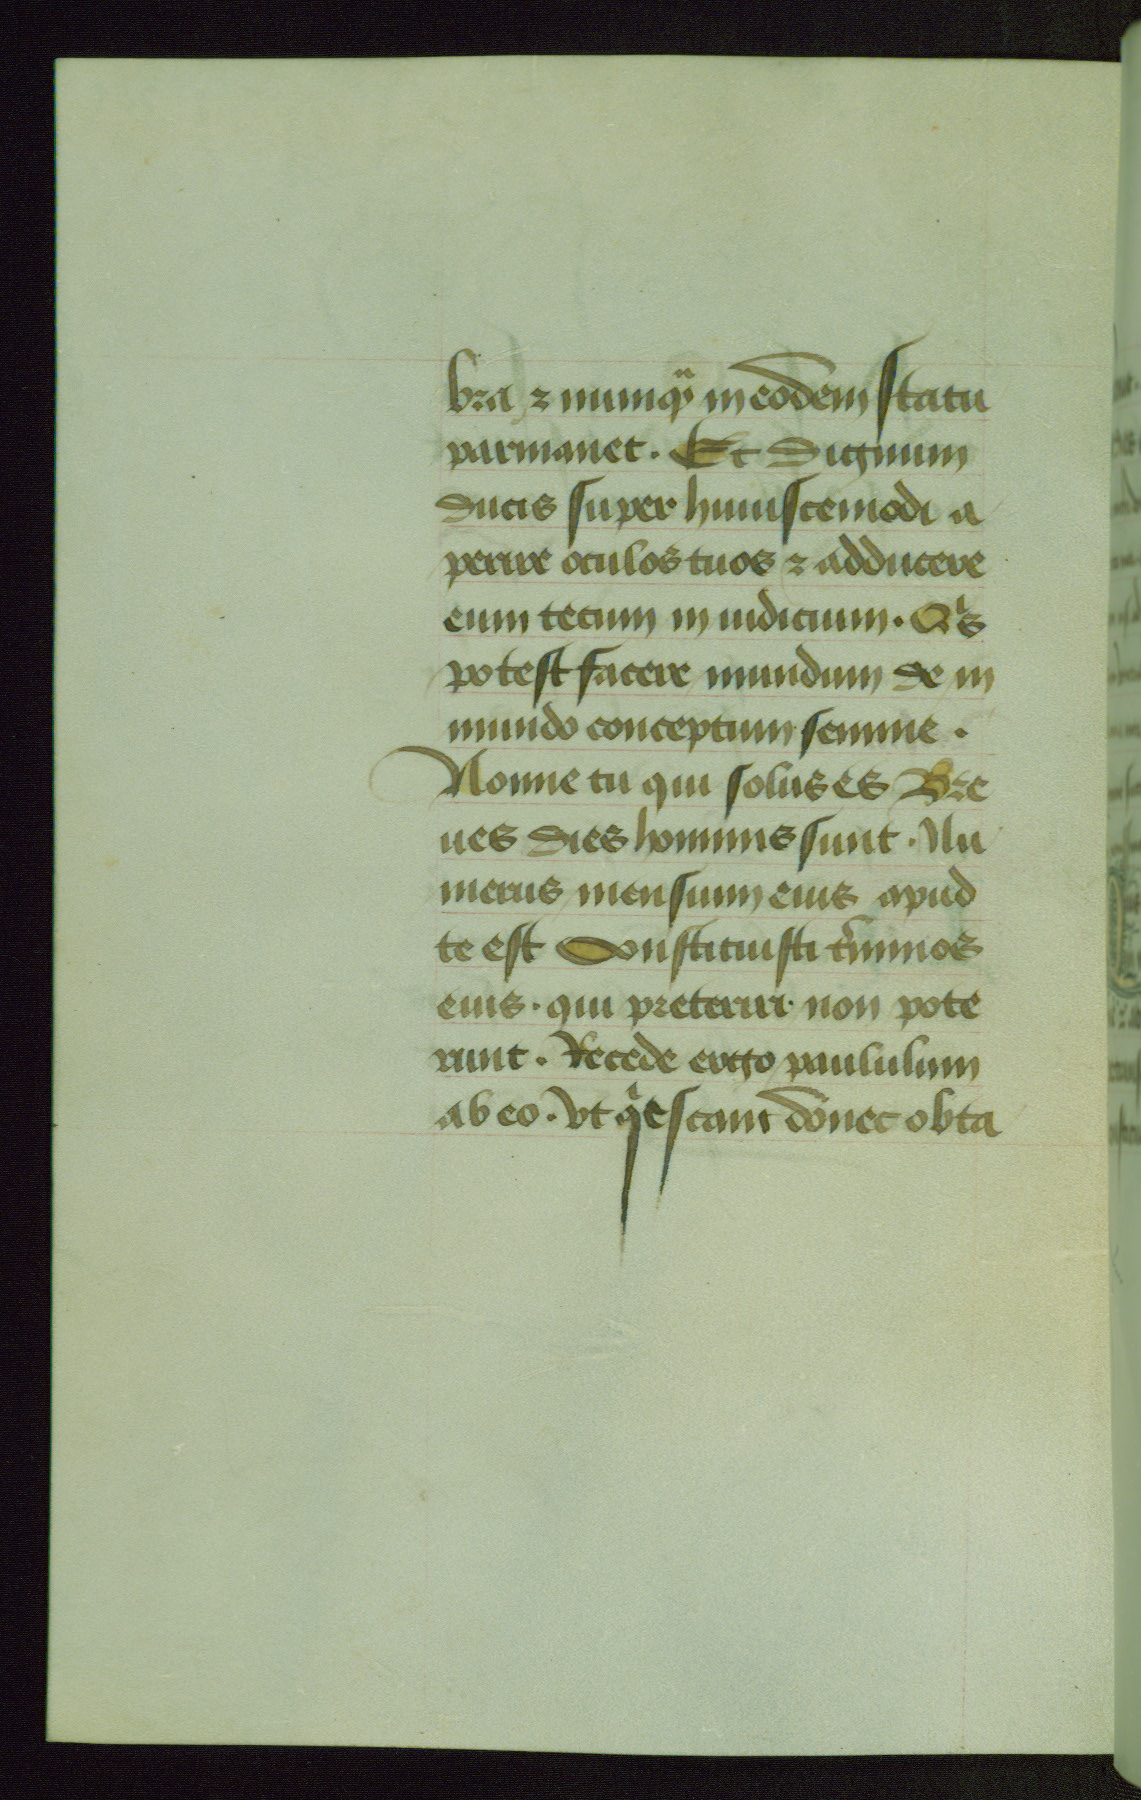 bra et numqᷓ in eodem statu
parmanet. Et dignum
ducis super huiuscemodi a
perire oculos tuos et adducere
eum tecum in iudicium. Qͥs
potest facere mundum de in
mundo conceptum semine.
Nonne tu qui solus es Bre
ues dies hominis sunt. Nu
merus mensium eius apud
te est Constituisti t̾minos
eius. qui preterirr non pote
runt. Recede ergo paululum
ab eo. vt qͥescant donec obta